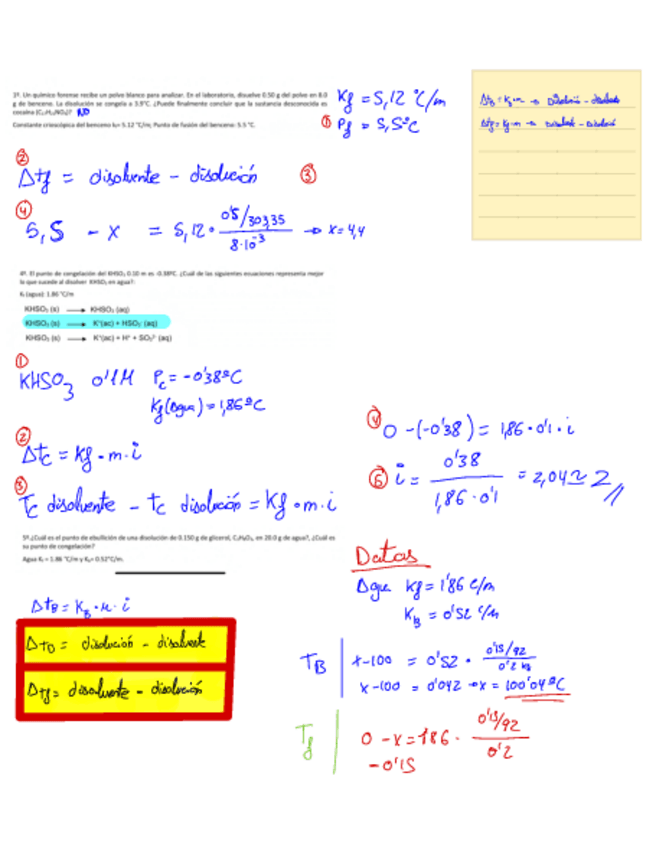 1º. Un químico forense recibe un polvo blanco para analizar. En el laboratorio, disuelve 0.50 g del polvo en 8.0
g de benceno. La disolución se congela a 3.9°C. ¿Puede finalmente concluir que la sustancia desconocida es
cocaína (C₁₇H₂₁NO₄)? NO
Constante crioscópica del benceno k= 5.12 °C/m; Punto de fusión del benceno: 5.5 °C.
Kf = 5,12 °C/m
① Pf = 5,5ºC
Δtb = Kb·m → Disolución - disolvente
Δtf = Kf·m → Disolvente - Disolución
②
Δtf = disolvente - disolución ③
④
5,5 - x = 5,12 · 0'5/303,35 / 8·10⁻³ → x = 4,4
4º. El punto de congelación del KHSO₃ 0.10 m es -0.38ºC. ¿Cuál de las siguientes ecuaciones representa mejor
lo que sucede al disolver KHSO₃ en agua?:
Kf (agua): 1.86 °C/m
KHSO₃ (s) → KHSO₃ (aq)
KHSO₃ (s) → K⁺(ac) + HSO₃⁻ (aq)
KHSO₃ (s) → K⁺(ac) + H⁺ + SO₃²⁻ (aq)
①
KHSO₃ 0'1M Pc = -0'38ºC
Kf(Agua) = 1,86ºC
②
Δtc = Kf · m · i
③
Tc disolvente - tc disolución = Kf · m · i
④ 0 - (-0'38) = 1,86 · 0'1 · i
⑤ i = 0'38 / 1,86 · 0'1 = 2,04 ≃ 2
5º. ¿Cuál es el punto de ebullición de una disolución de 0.150 g de glicerol, C₃H₈O₃, en 20.0 g de agua?, ¿Cuál es
su punto de congelación?
Agua Kf = 1.86 °C/m y Kb= 0.52°C/m.
Datos
Agua Kf = 1'86 ºC/m
Kb = 0'52 ºC/m
Δtb = Kb · m · i
Δtb = disolución - disolvente
Δtf = disolvente - disolución
TB
x - 100 = 0'52 · 0'15/92 / 0'2 kg
x - 100 = 0'042 → x = 100'04ºC
Tf
0 - x = 1'86 · 0'15/92 / 0'2
-0'15